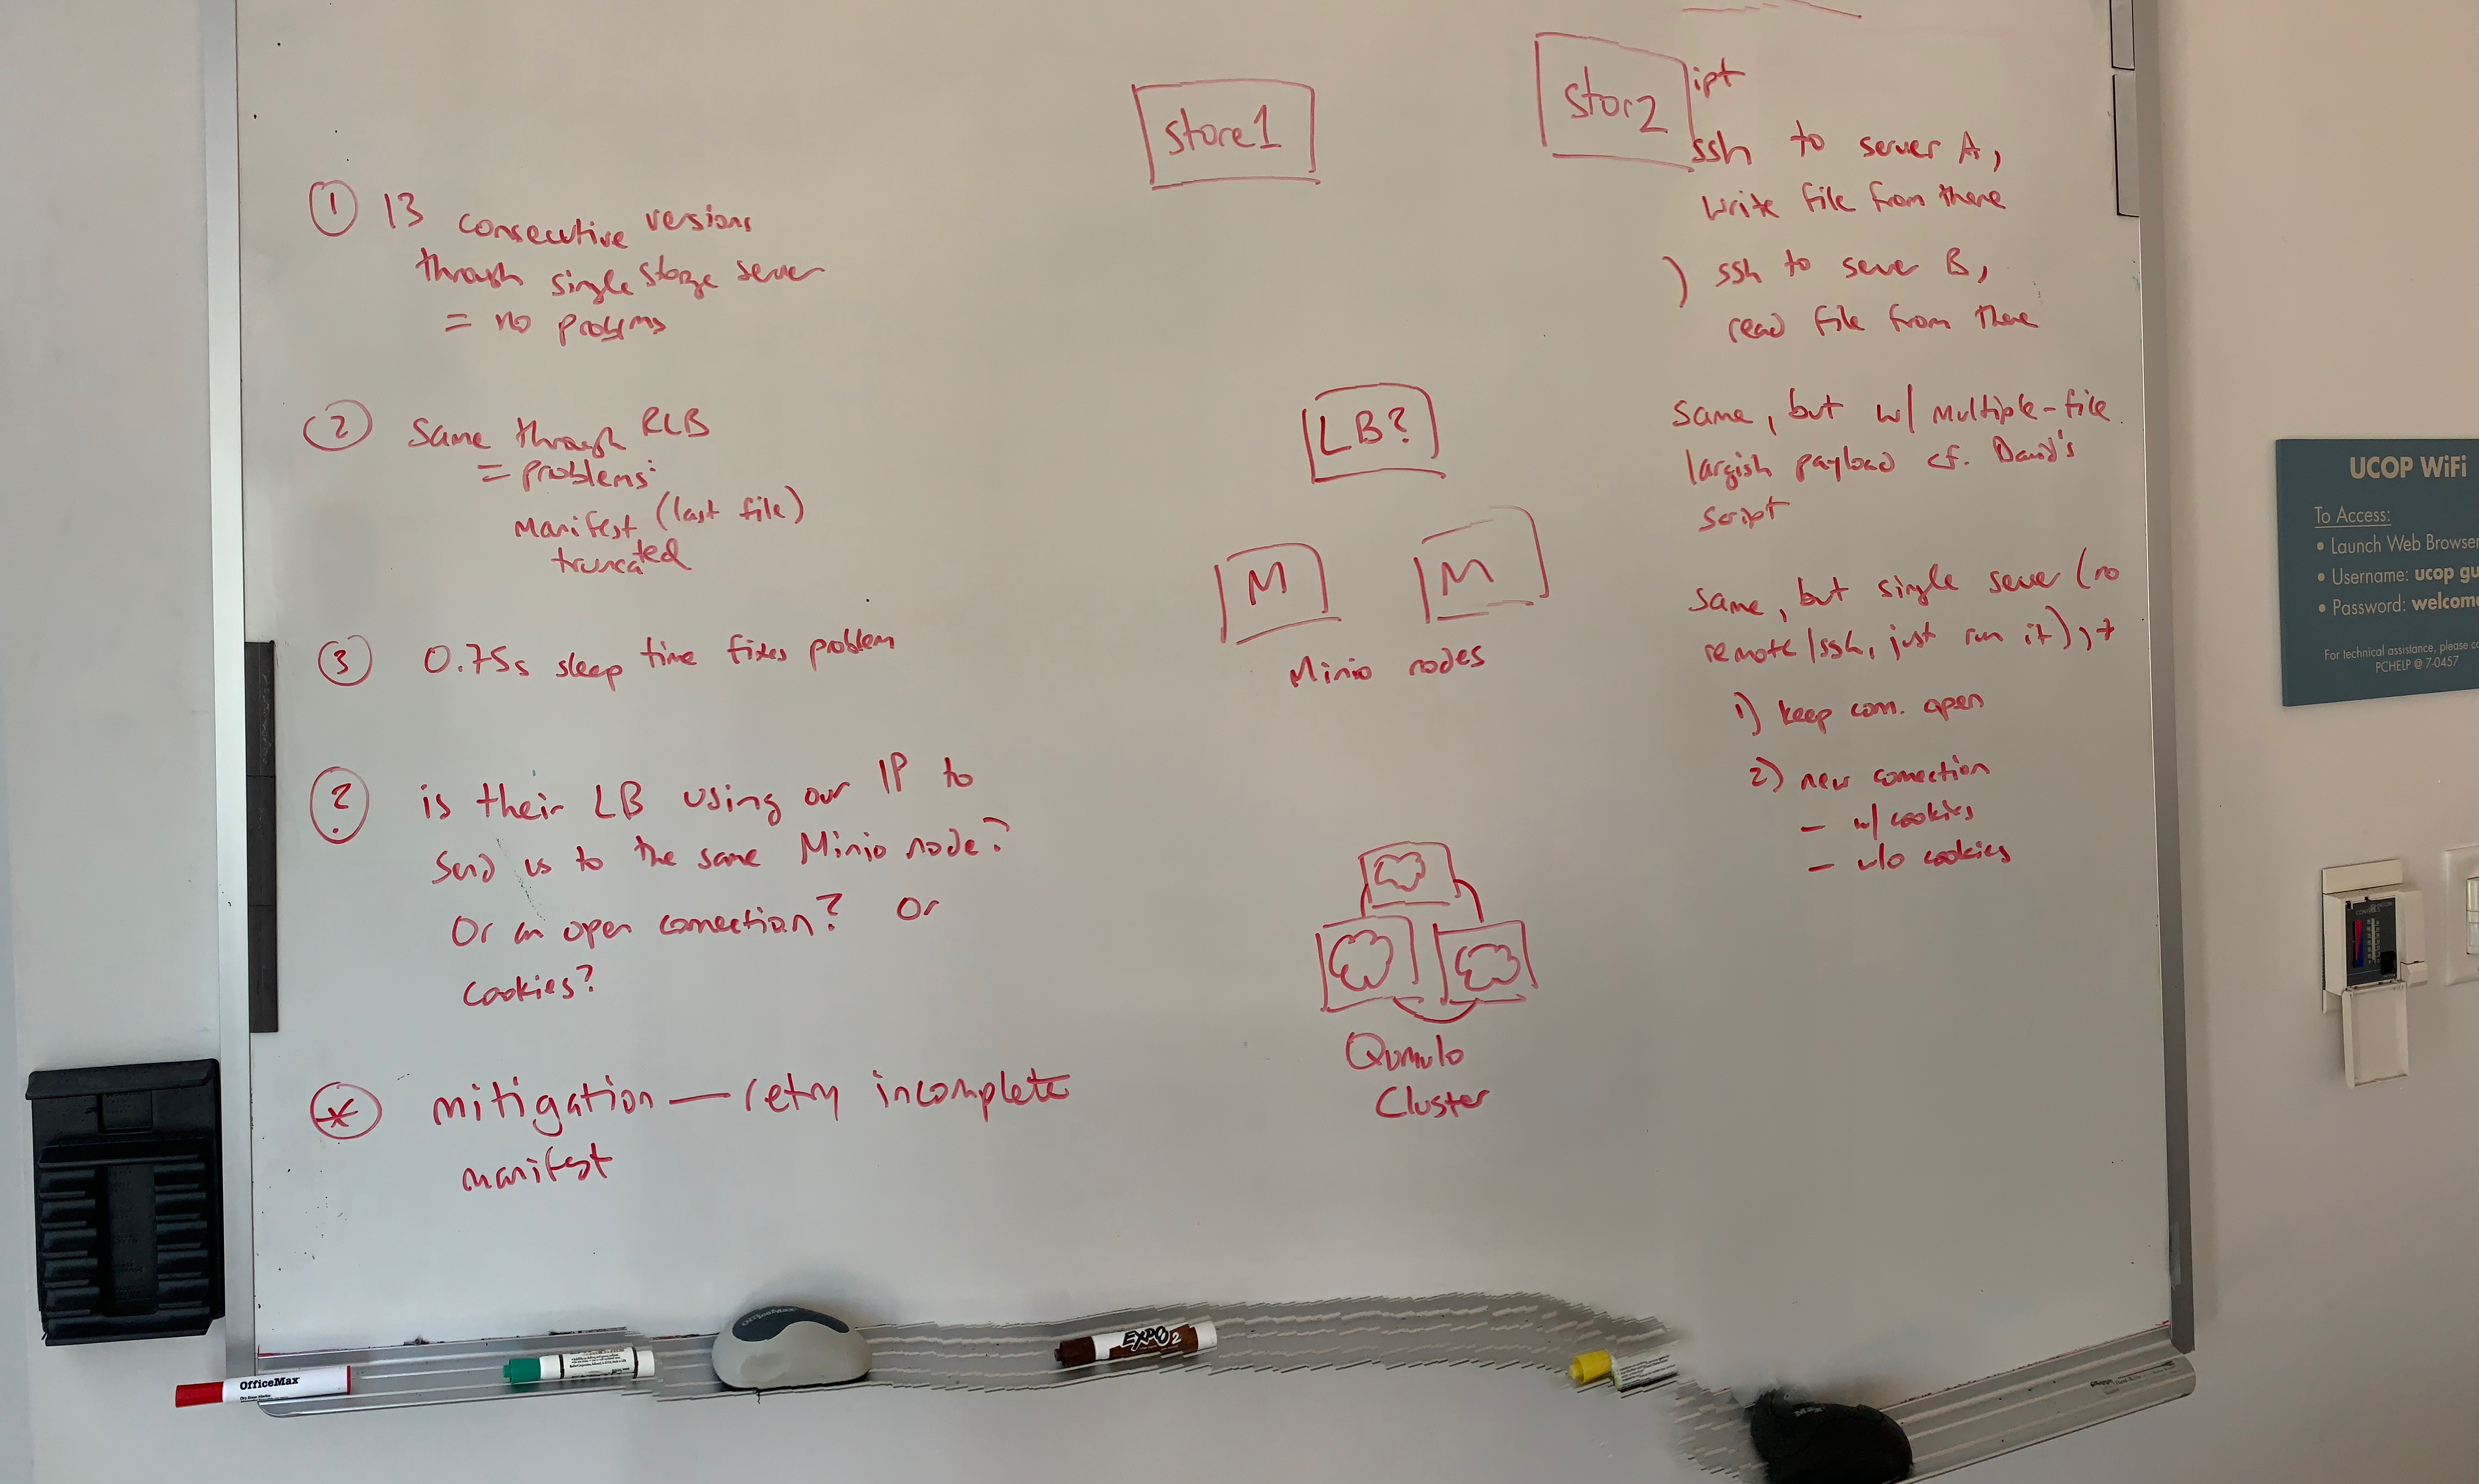 ① 13 consecutive versions
through single storage server
= no problems
② Same through RLB
= problems:
manifest (last file)
truncated
③ 0.75s sleep time fixes problem
? is their LB using our IP to
send us to the same Minio node?
Or an open connection? Or
cookies?
* mitigation — retry incomplete
manifest
store1
stor2
LB?
M M
Minio nodes
Qumulo
Cluster
ipt
ssh to server A,
write file from there
) ssh to server B,
read file from there
same, but w/ multiple-file
largish payload cf. David's
script
same, but single server (no
remote/ssh, just run it), +
1) keep conn. open
2) new connection
- w/ cookies
- w/o cookies
UCOP WiFi
To Access:
• Launch Web Browser
• Username: ucop gu
• Password: welcome
For technical assistance, please co
PCHELP @ 7-0457
OfficeMax
EXPO 2